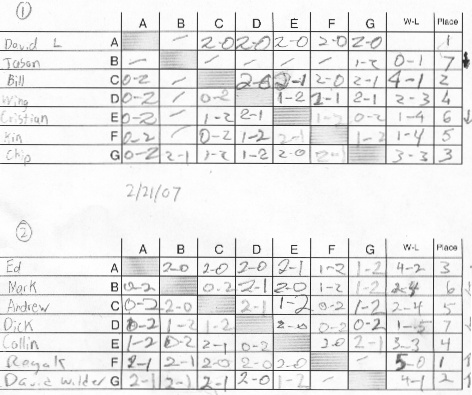 ①
A B C D E F G W-L Place
David L A / 2-0 2-0 2-0 2-0 2-0 1
Jason B / / / / / 1-2 0-1 7
Bill C 0-2 / 2-0 2-1 2-0 2-1 4-1 2
Wing D 0-2 / 0-2 1-2 2-1 2-1 2-3 4
Cristian E 0-2 / 1-2 2-1 1-2 0-2 1-4 6 ↓
Xin F 0-2 / 0-2 1-2 2-1 1-2 1-4 5
Chip G 0-2 2-1 1-2 1-2 2-0 2-1 3-3 3
2/21/07
②
A B C D E F G W-L Place
Ed A 2-0 2-0 2-0 2-1 1-2 1-2 4-2 3
Mark B 0-2 0-2 2-1 2-0 1-2 1-2 2-4 6 ↓
Andrew C 0-2 2-0 2-1 1-2 0-2 1-2 2-4 5
Dick D 0-2 1-2 1-2 2-0 0-2 0-2 1-5 7 ↓
Collin E 1-2 0-2 2-1 0-2 2-0 2-1 3-3 4
F 2-1 2-1 2-0 2-0 2-0 / 5-0 1 ↑
David Wilder G 2-1 2-1 2-1 2-0 1-2 / 4-1 2 ↑